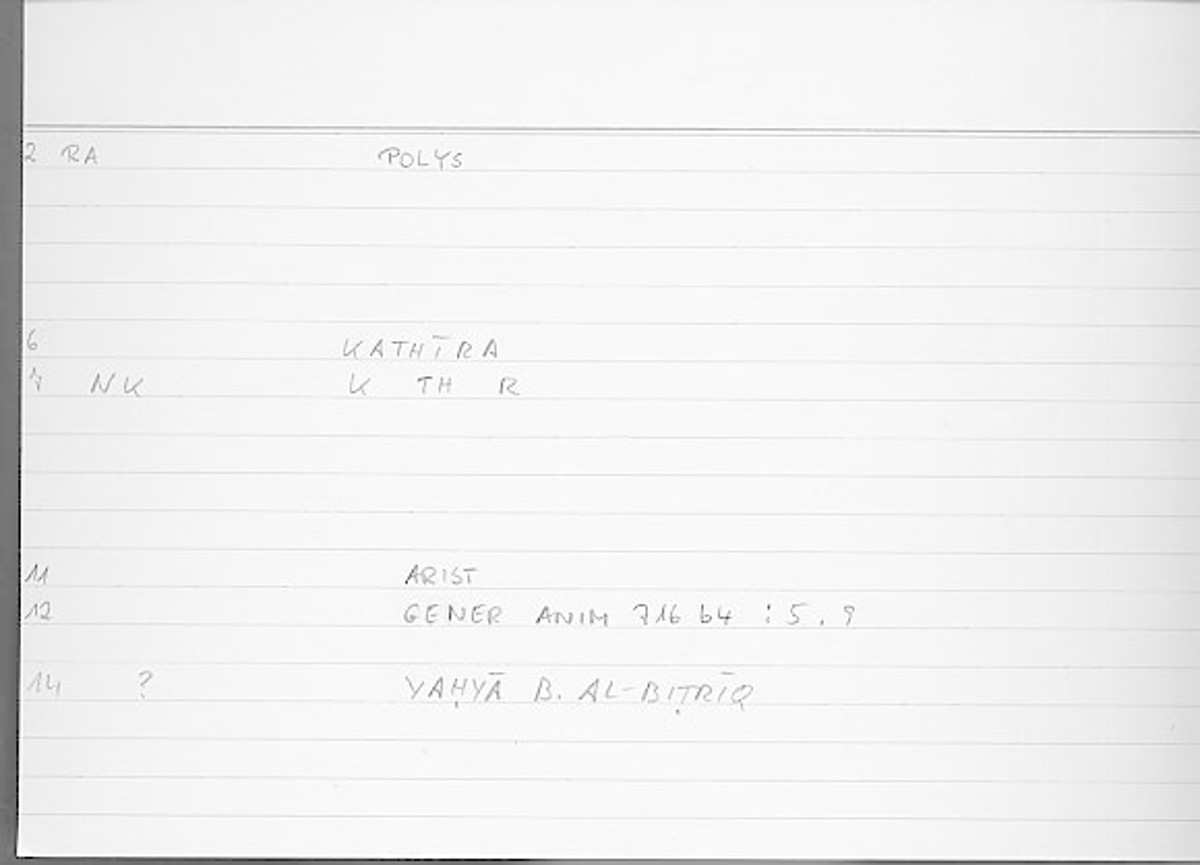 2 RA POLYS
6 KATHĪRA
7 NK K TH R
11 ARIST
12 GENER ANIM 716 b4 : 5 . 9
14 ? YAḤYĀ B. AL-BIṬRĪQ